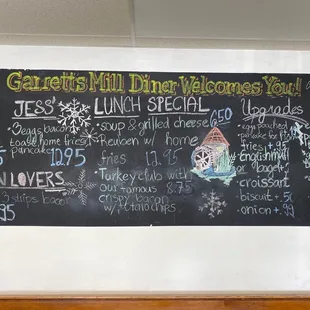 Garretts Mill Diner Welcomes You!
JESS'
eggs bacon
toast home fries
pancake 12.95
N LOVERS
5 strips bacon
95
LUNCH SPECIAL
soup & grilled cheese 6.50
Reuben w/ home
fries 13.95
Turkey club with
our famous 8.75
crispy bacon
w/ potato chips
Upgrades
egg poached
pancake for
fries +.95
english muff
or bagel
croissant
biscuit +.50
onion +.99